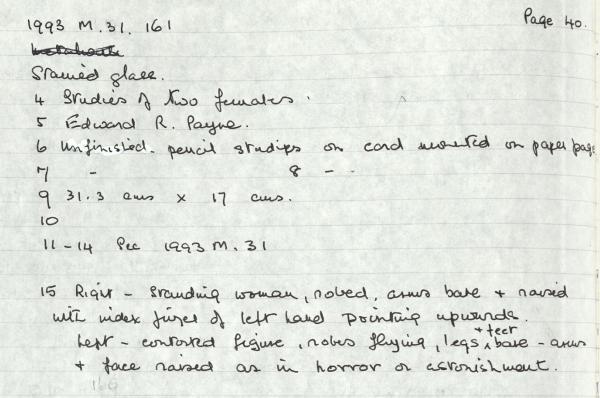 1993 M.31. 161 Page 40.
Stained glass.
4 Studies of two females.
5 Edward R. Payne.
6 Unfinished. pencil studies on card mounted on paper page
7 - 8 - .
9 31.3 cms x 17 cms.
10
11-14 See 1993 M.31
15 Right - Standing woman, robed, arms bare + raised
with index finger of left hand pointing upwards.
Left - contorted figure, robes flying, legs + feet bare - arms
+ face raised as in horror or astonishment.
160